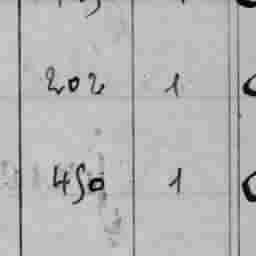 202 1
450 1